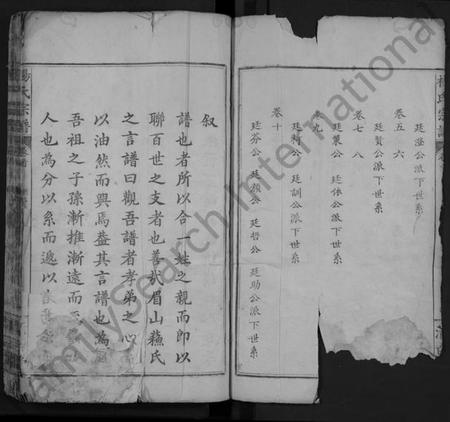 楊氏宗譜
廷滢公派下世系
卷五 六
廷賢公派下世系
卷七 八
廷棐公 廷侏公派下世系
卷九
廷 公 廷訓公派下世系
卷十
廷芬公 廷顏公 廷哲公 廷助公派下世系
叙
譜也者所以合一姓之親而即以
聯百世之支者也善哉眉山蘇氏
之言譜曰觀吾譜者孝弟之心
以油然而興焉葢其言譜也為
吾祖之子孫漸推漸遠而
人也為分以系而遞以
楊氏宗譜
FamilySearch International